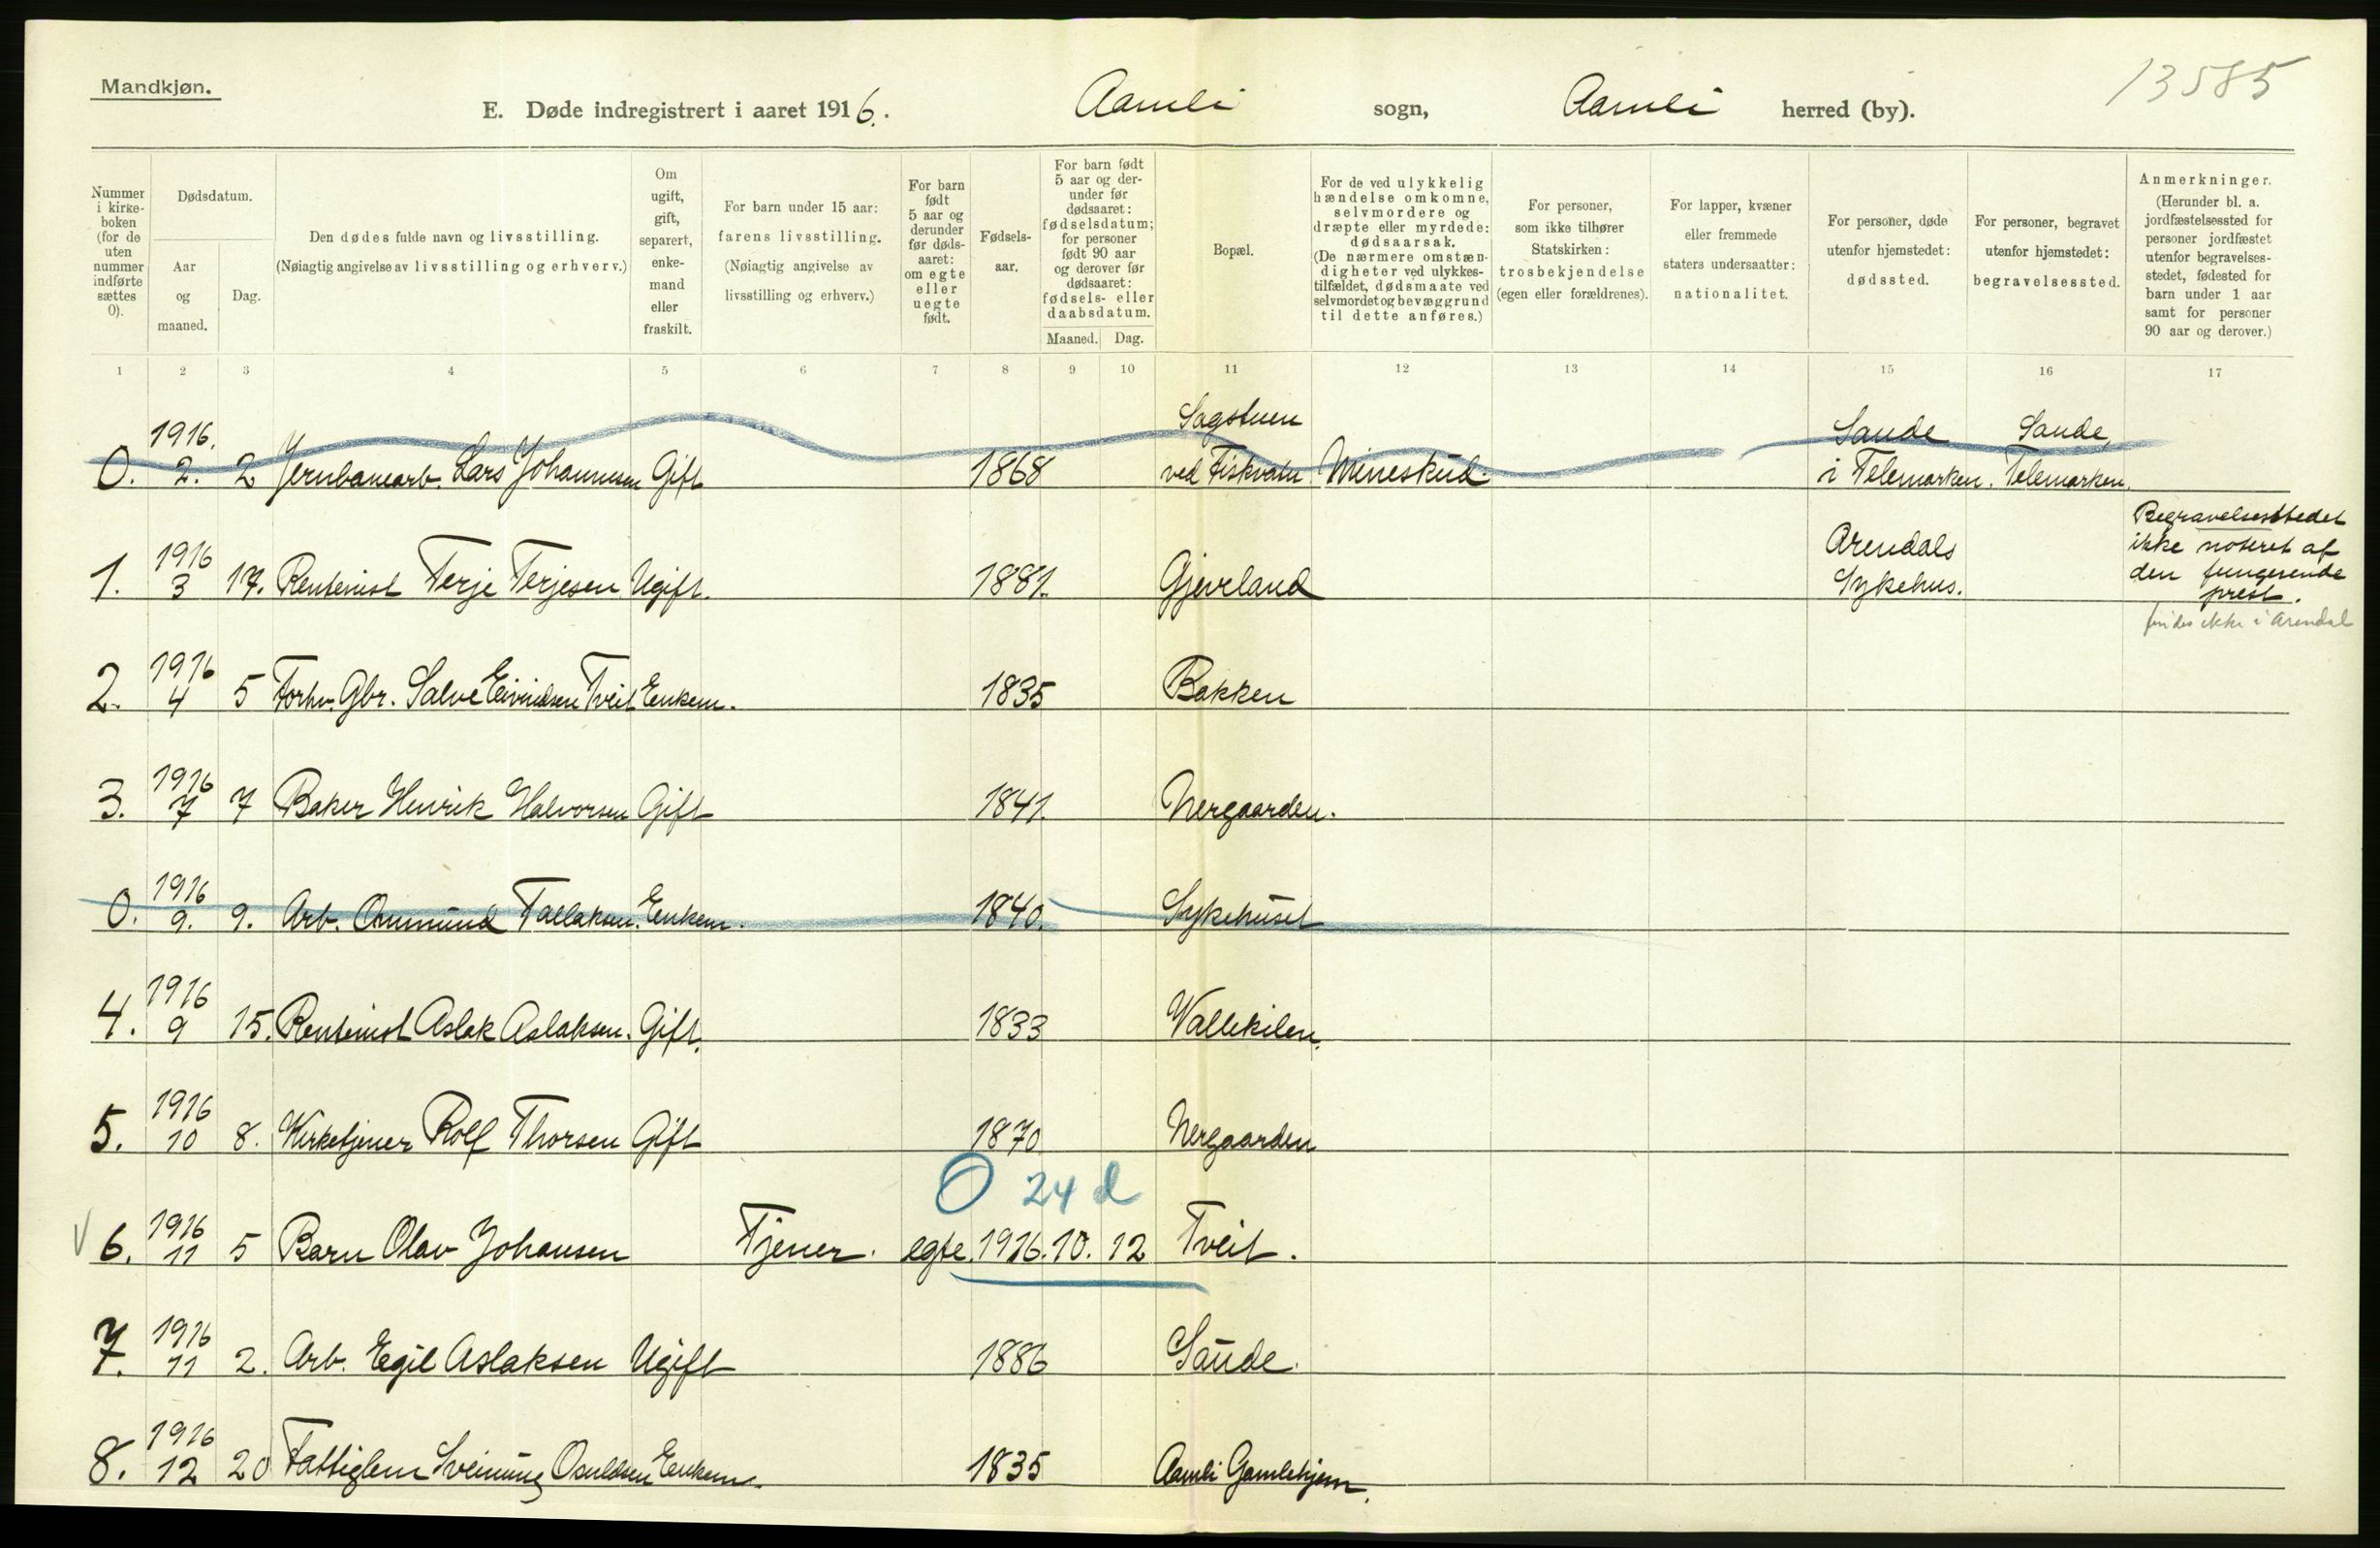 Mandkjøn.
13585
E. Døde indregistrert i aaret 1916. Aamli sogn, Aamli herred (by).
Nummer i kirke-boken (for de uten nummer indførte sættes 0).
Dødsdatum.
Aar og maaned.
Dag.
Den dødes fulde navn og livsstilling.
(Nøiagtig angivelse av livsstilling og erhverv.)
Om ugift, gift, separert, enke-mand eller fraskilt.
For barn under 15 aar: farens livsstilling.
(Nøiagtig angivelse av livsstilling og erhverv.)
For barn født 5 aar og derunder før døds-aaret: om egte eller uegte født.
Fødsels-aar.
For barn født 5 aar og der-under før dødsaaret: fødselsdatum; for personer født 90 aar og derover før dødsaaret: fødsels- eller daabsdatum.
Maaned. Dag.
Bopæl.
For de ved ulykkelig hændelse omkomne, selvmordere og dræpte eller myrdede: dødsaarsak.
(De nærmere omstæn-digheter ved ulykkes-tilfældet, dødsmaate ved selvmordet og bevæggrund til dette anføres.)
For personer, som ikke tilhører Statskirken: trosbekjendelse (egen eller forældrenes).
For lapper, kvæner eller fremmede staters undersaatter: nationalitet.
For personer, døde utenfor hjemstedet: dødssted.
For personer, begravet utenfor hjemstedet: begravelsessted.
Anmerkninger.
(Herunder bl. a. jordfæstelsessted for personer jordfæstet utenfor begravelses-stedet, fødested for barn under 1 aar samt for personer 90 aar og derover.)
1 2 3 4 5 6 7 8 9 10 11 12 13 14 15 16 17
1916. Sagstuen Saude Saude,
0. 2. 2 Jernbanearb. Lars Johannesen Gift 1868 ved Fiskvatn Mineskud. i Telemarken. Telemarken.
1916 Arendals Begravelsesstedet ikke noteret af
1. 3 17. Rentenist Terje Terjesen Ugift. 1881. Gjeveland Sykehus. den fungerende prest.
findes ikke i Arendal
1916
2. 4 5 Forhv. Gbr. Salve Eivindsen Tveit Enkem. 1835 Bakken
1916
3. 7 7 Baker Henrik Halvorsen Gift 1841. Nergaarden.
1916
0. 9. 9. Arb. Aanmund Tallaksen. Enkem. 1840. Sykehuset
1916
4. 9 15. Rentenist Aslak Aslaksen. Gift. 1833 Vallekilen.
1916
5. 10 8. Kirketjener Rolf Thorsen Gift 1870 Nergaarden
O 24 d
1916
6. 11 5 Barn Olav Johansen Tjener. egte. 1916. 10. 12 Tveit.
1916
7. 11 2. Arb. Egil Aslaksen Ugift 1886 Saude.
1916
8. 12 20 Fattiglem Sveinung Osuldsen Enkem. 1835 Aamli Gamlehjem.